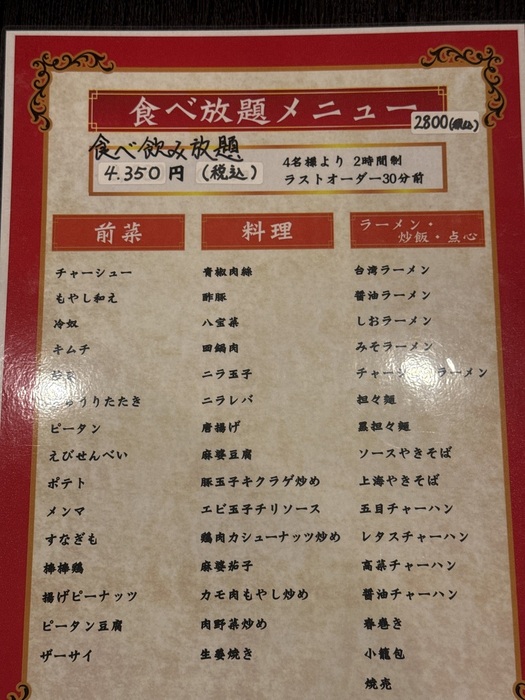 食べ放題メニュー
2800(税込)
食べ飲み放題
4.350円(税込)
4名様より 2時間制
ラストオーダー30分前
前菜
チャーシュー
もやし和え
冷奴
キムチ
うりたたき
ピータン
えびせんべい
ポテト
メンマ
すなぎも
棒棒鶏
揚げピーナッツ
ピータン豆腐
ザーサイ
料理
青椒肉絲
酢豚
八宝菜
回鍋肉
ニラ玉子
ニラレバ
唐揚げ
麻婆豆腐
豚玉子キクラゲ炒め
エビ玉子チリソース
鶏肉カシューナッツ炒め
麻婆茄子
カモ肉もやし炒め
肉野菜炒め
生姜焼き
ラーメン・
炒飯・点心
台湾ラーメン
醤油ラーメン
しおラーメン
みそラーメン
チャーシューラーメン
担々麺
黒担々麺
ソースやきそば
上海やきそば
五目チャーハン
レタスチャーハン
高菜チャーハン
醤油チャーハン
春巻き
小籠包
焼売